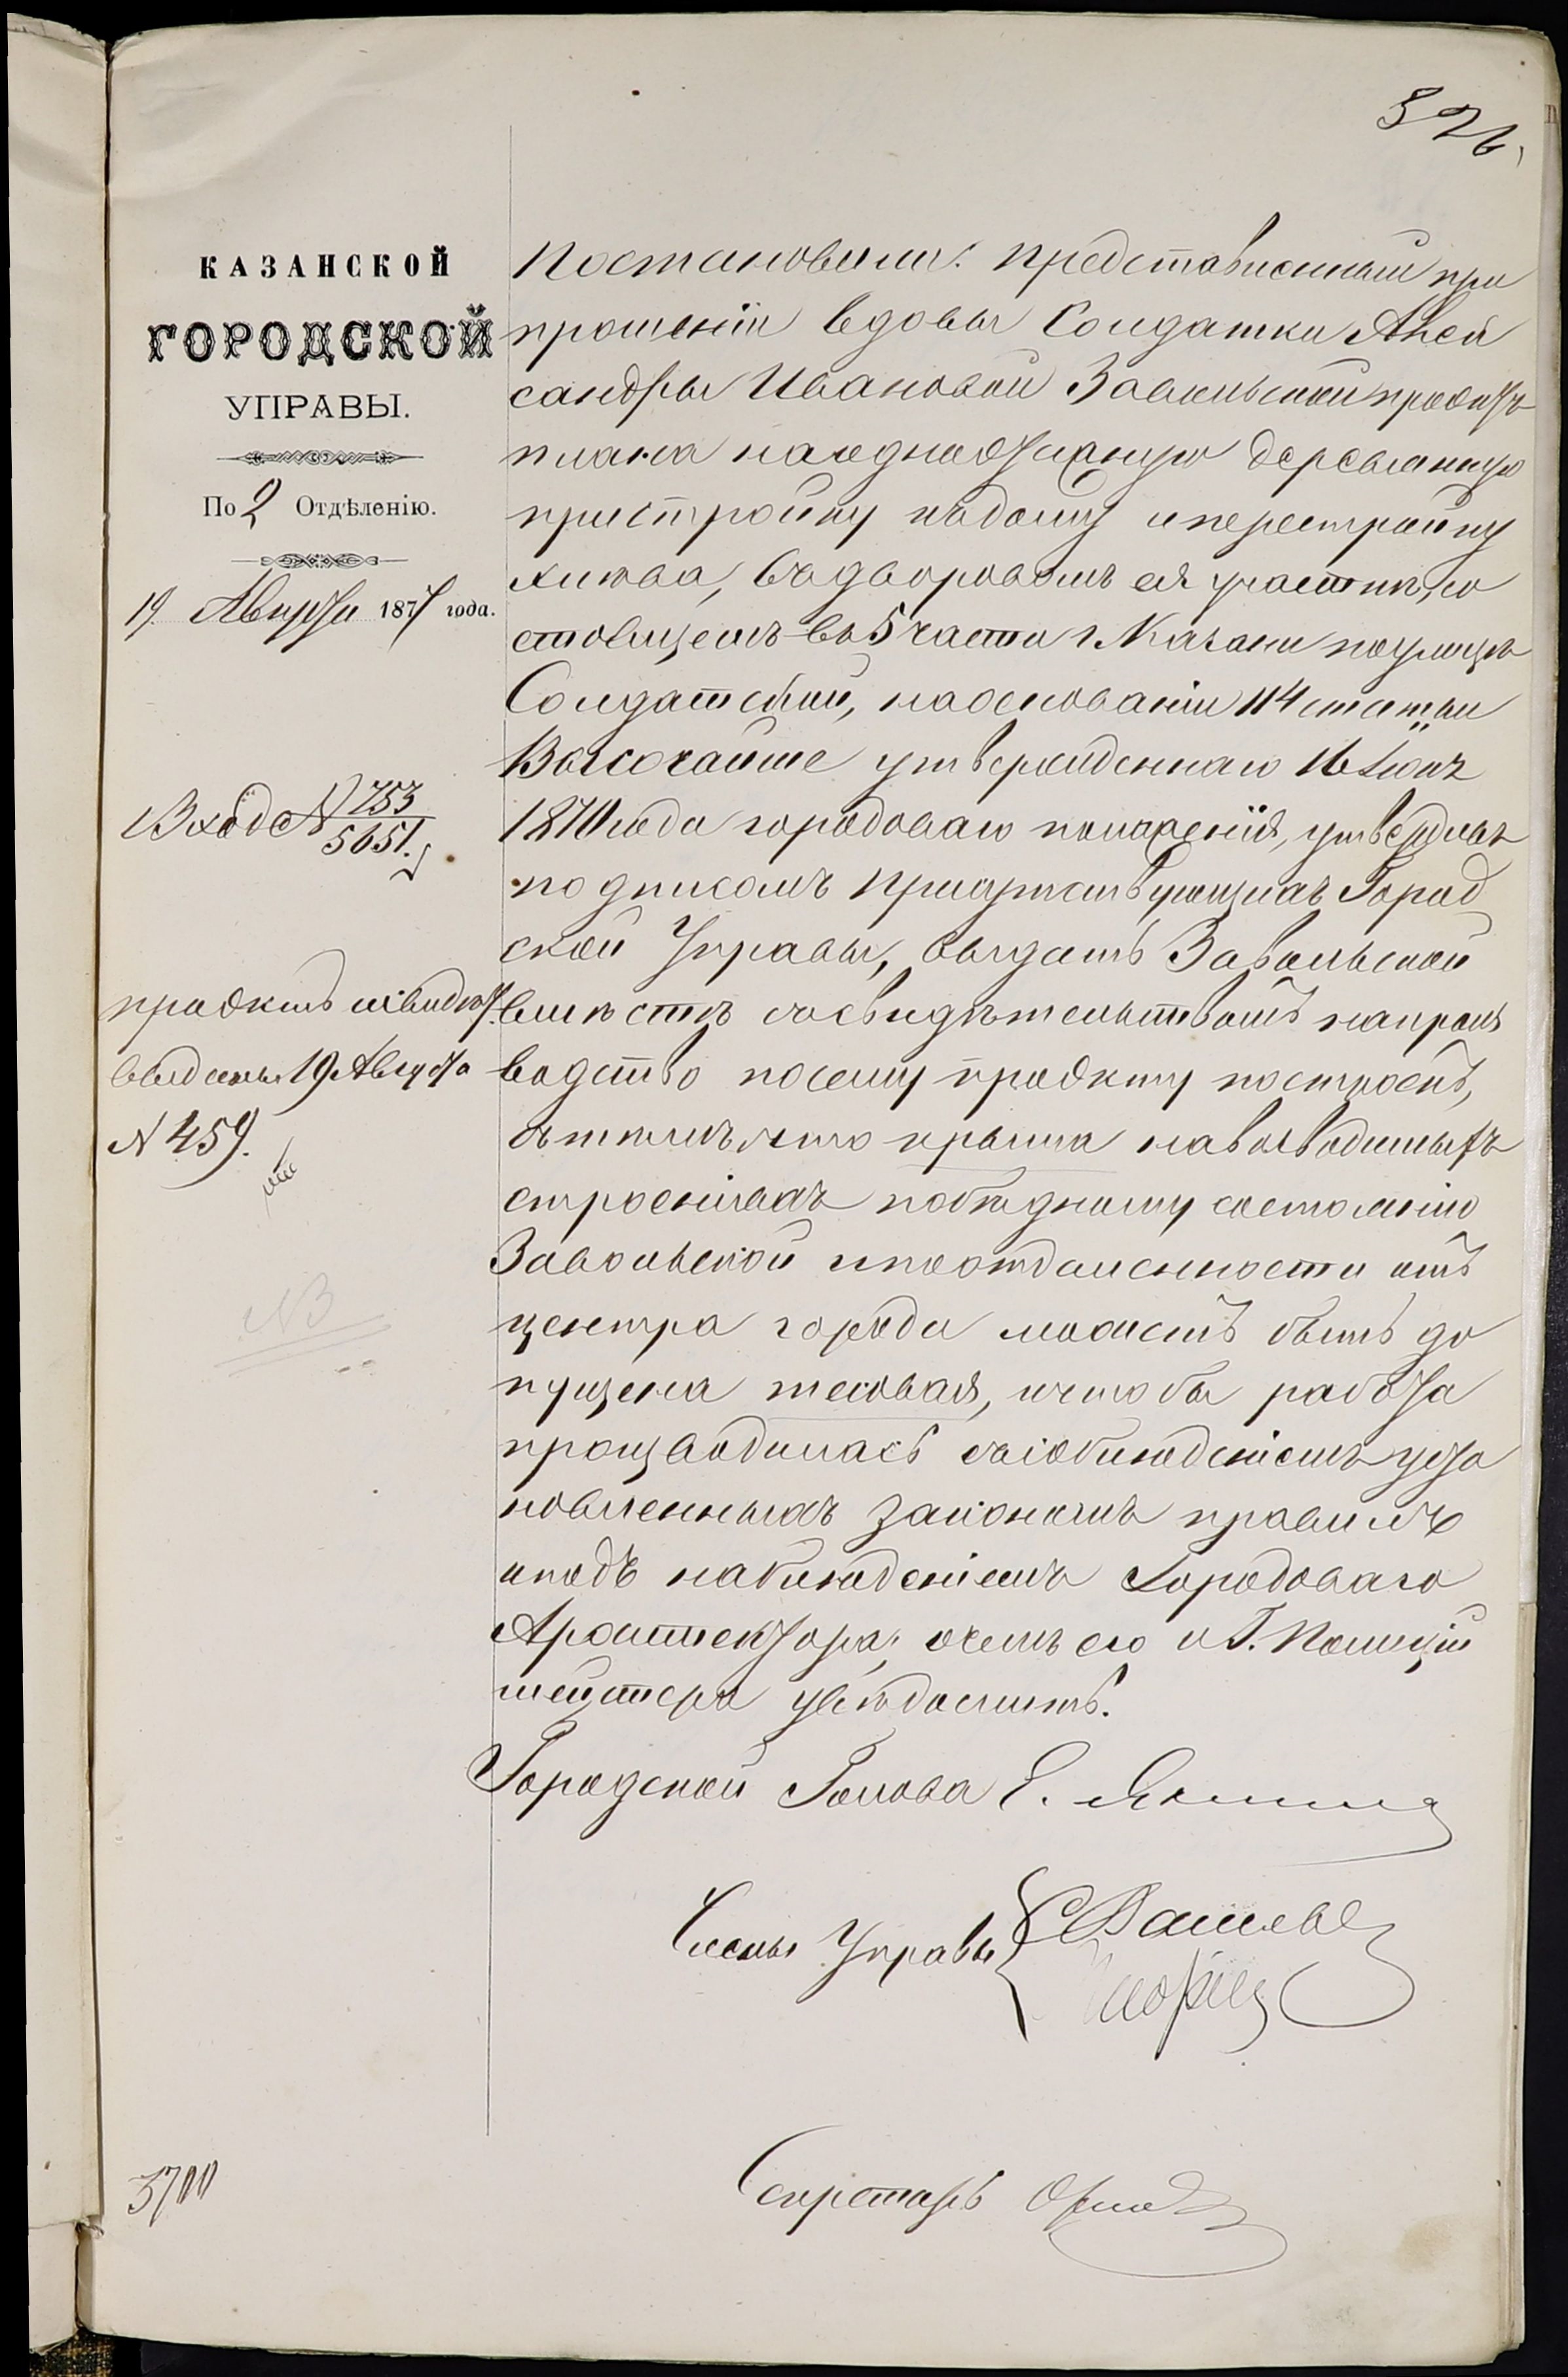 326.
КАЗАНСКОЙ
ГОРОДСКОЙ
УПРАВЫ.
По 2 Отдѣленію.
19 Августа 1877 года.
Вход № 753
5651.
проэктъ и свидѣт.
выданы 19 Августа
№ 459.
NB
3700
Постановили: представленный при
прошеніи вдовы Солдатки Алек
сандры Ивановой Завольской проэктъ
плана на одноэтажную деревянную
пристройку къ дому и перестройку
хлѣва, въ дворовомъ ея участкѣ, со
стоящемъ въ 5 части г. Казани по улицѣ
Солдатской, на основаніи 114 статьи
Высочайше утвержденнаго 16 Іюня
1870 года городоваго положенія, утвердивъ
подписомъ присутствующихъ Город
ской Управы, выдать Завольской
вмѣстѣ со свидѣтельствомъ на произ
водство по сему проэкту построекъ,
съ тѣмъ, что крыша на возводимыхъ
строеніяхъ по бѣдному состоянію
Завольской и по отдаленности отъ
центра города можетъ быть до
пущена тесовая, и чтобы работа
производилась съ соблюденіемъ уста
новленныхъ закономъ правилъ
и подъ наблюденіемъ Городоваго
Архитектора, о чемъ его и Г. Полицій
мейстера увѣдомить.
Городской Голова Е. Янишъ
Члены Управы
Секретарь